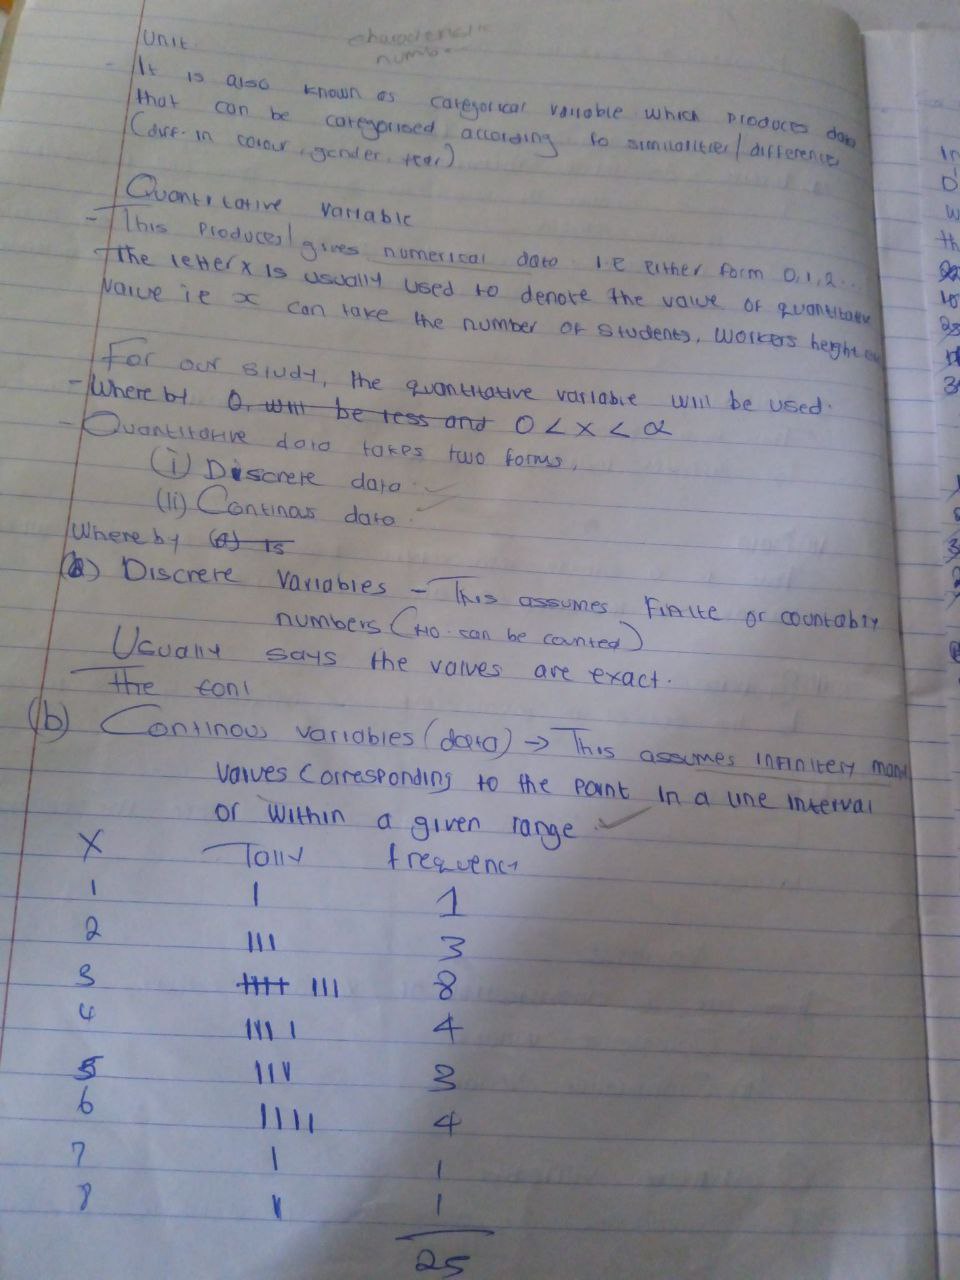 characteristic
numb
Unit
- It is also known as categorical variable which produces data
that can be categorised according to similarities/difference
(diff. in colour, gender,
Quantitative variable
- This produces/gives numerical data i.e either form 0,1,2...
The letter x is usually used to denote the value of quantitative
value ie x can take the number of students, workers height
For our study, the quantitative variable will be used.
- Where by 0, will be less and 0 < x < α
- Quantitative data takes two forms,
(i) Discrete data
(ii) Continas data
Where by (a) is
(a) Discrete Variables - This assumes Finite or countably
numbers ( can be counted)
Usually says the values are exact.
The
(b) Continous variables (data) → This assumes infinitely many
values corresponding to the point in a line interval
or within a given range
X Tally frequency
1 | 1
2 ||| 3
3 |||| ||| 8
4 |||| 4
5 ||| 3
6 |||| 4
7 | 1
8 | 1
25